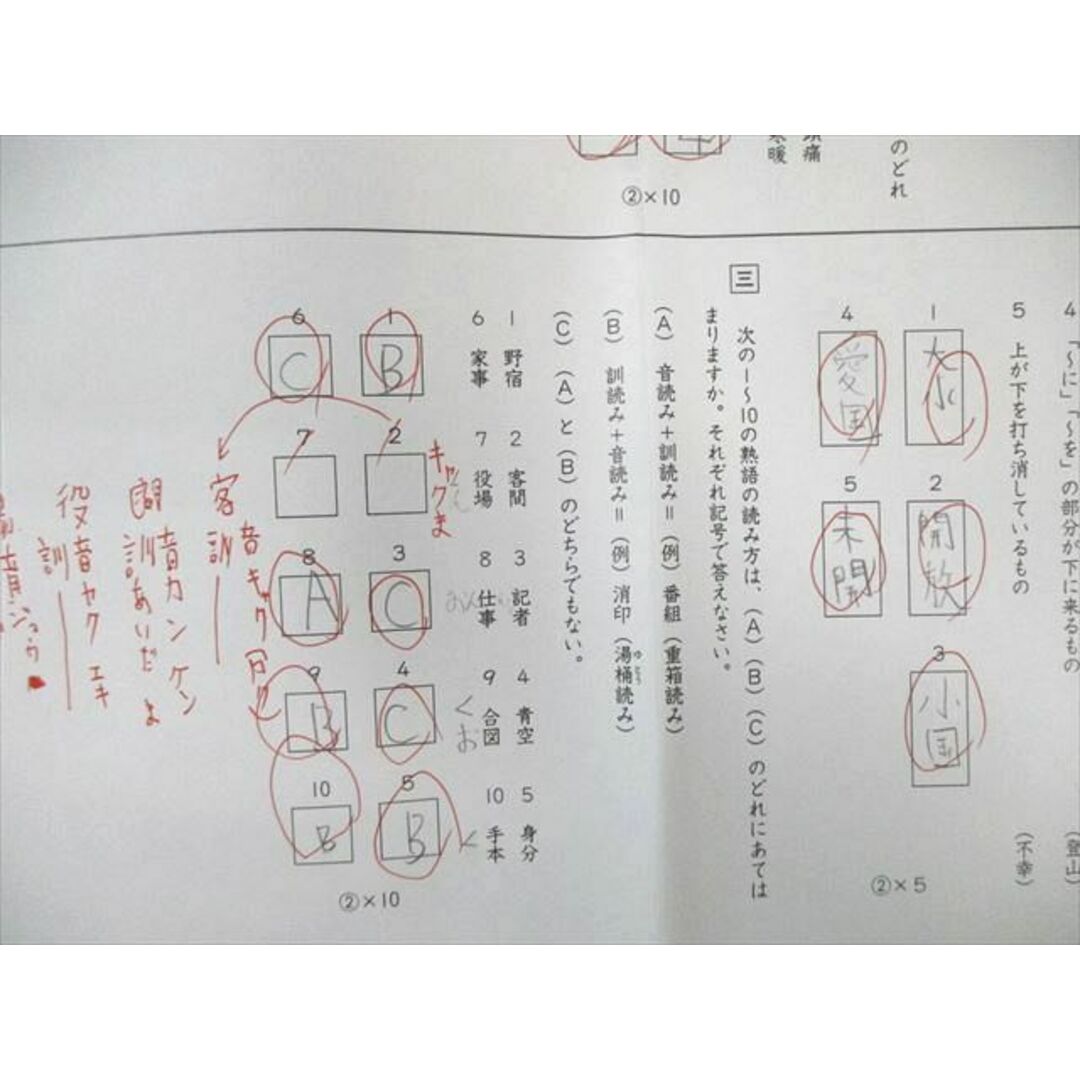 のどれ
頭痛
寒暖
②×10
4 「～に」「～を」の部分が下に来るもの
(登山)
5 上が下を打ち消しているもの
(不幸)
1
大水
2
開放
3
小国
4
愛国
5
未開
②×5
三 次の1～10の熟語の読み方は、(A)(B)(C)のどれにあてはまりますか。それぞれ記号で答えなさい。
(A) 音読み+訓読み=(例)番組(重箱読み)
(B) 訓読み+音読み=(例)消印(湯桶読み)
ゆとう
(C) (A)と(B)のどちらでもない。
1 野宿 2 客間 3 記者 4 青空 5 身分
6 家事 7 役場 8 仕事 9 合図 10 手本
キャクま
1
B
2
3
C
4
C
5
B
6
C
7
8
A
9
B
10
B
②×10
客 音キャク カク
訓
間 音カン ケン
訓あいだ ま
役 音ヤク エキ
訓